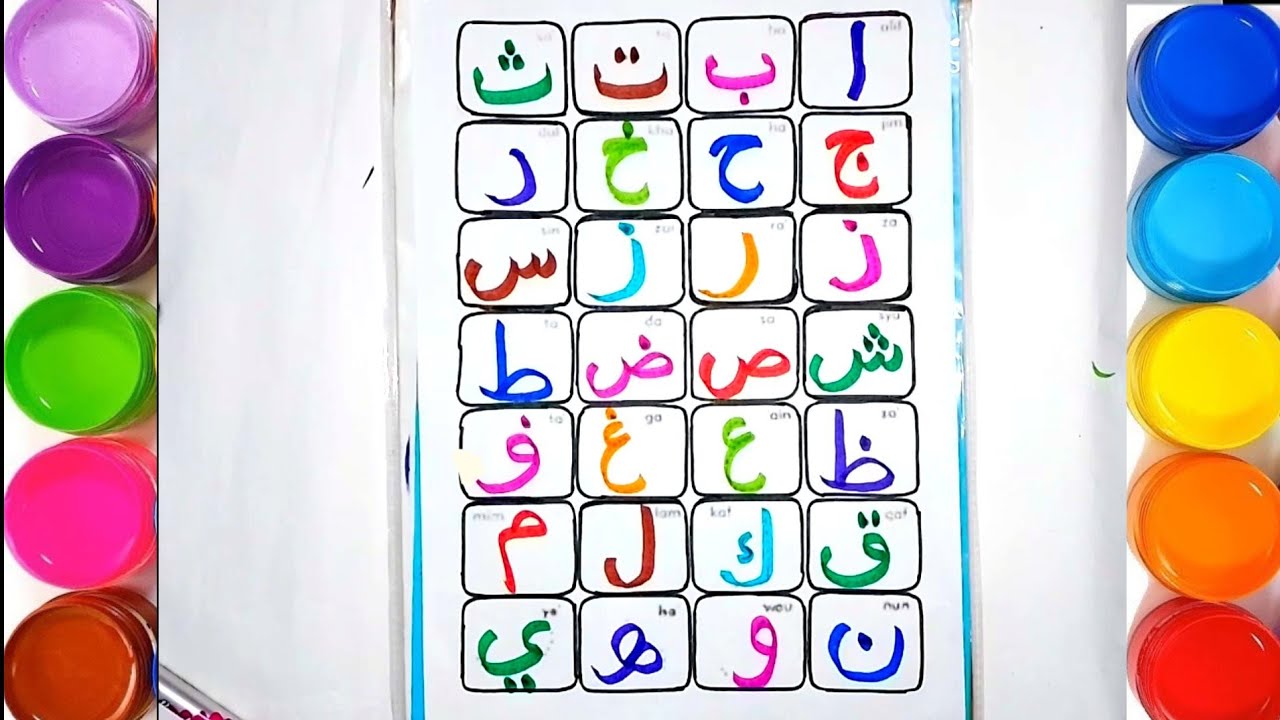 alif ba ta sa
ا ب ت ث
jim ha kha dal
ج ح خ ر
za ra zai sin
ز ر ز س
sya sa da ta
ش ص ض ط
za' ain ga fa
ظ ع غ ف
qaf kaf lam mim
ق ك ل م
nun wau ha ya'
ن و ه ي